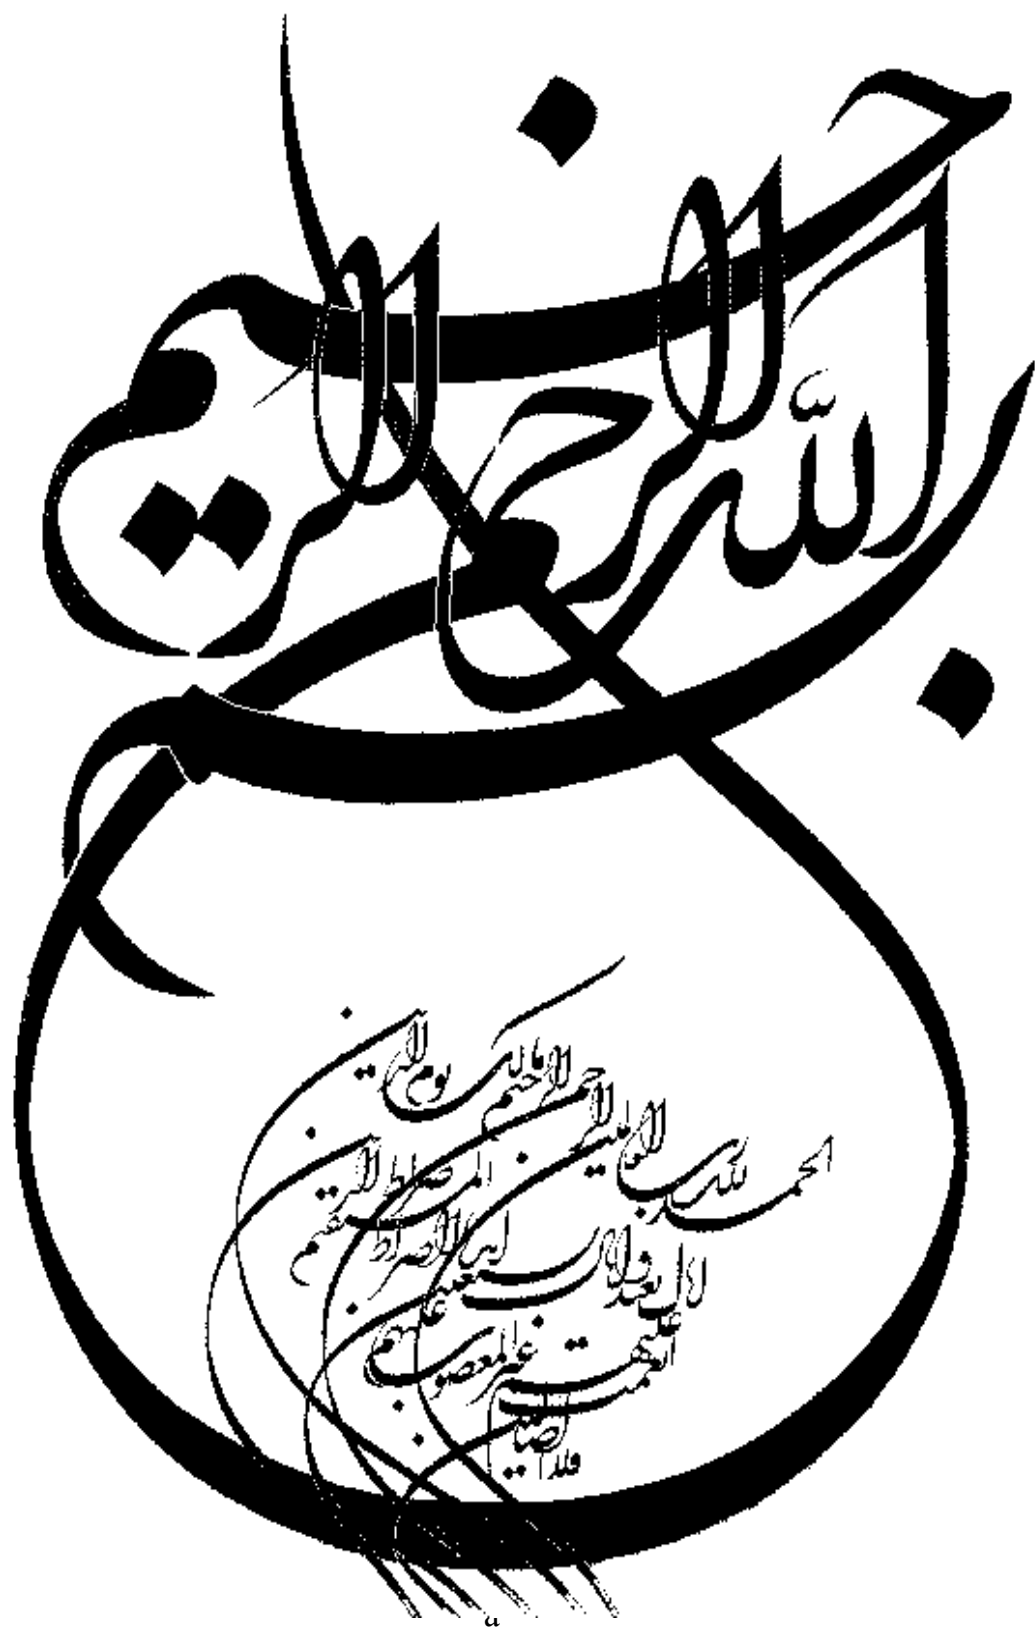 بسم الله الرحمن الرحيم
الحمد لله رب العالمين الرحمن الرحيم مالك يوم الدين
اياك نعبد و اياك نستعين اهدنا الصراط المستقيم صراط الذين
انعمت عليهم غير المغضوب عليهم
ولا الضالين
a